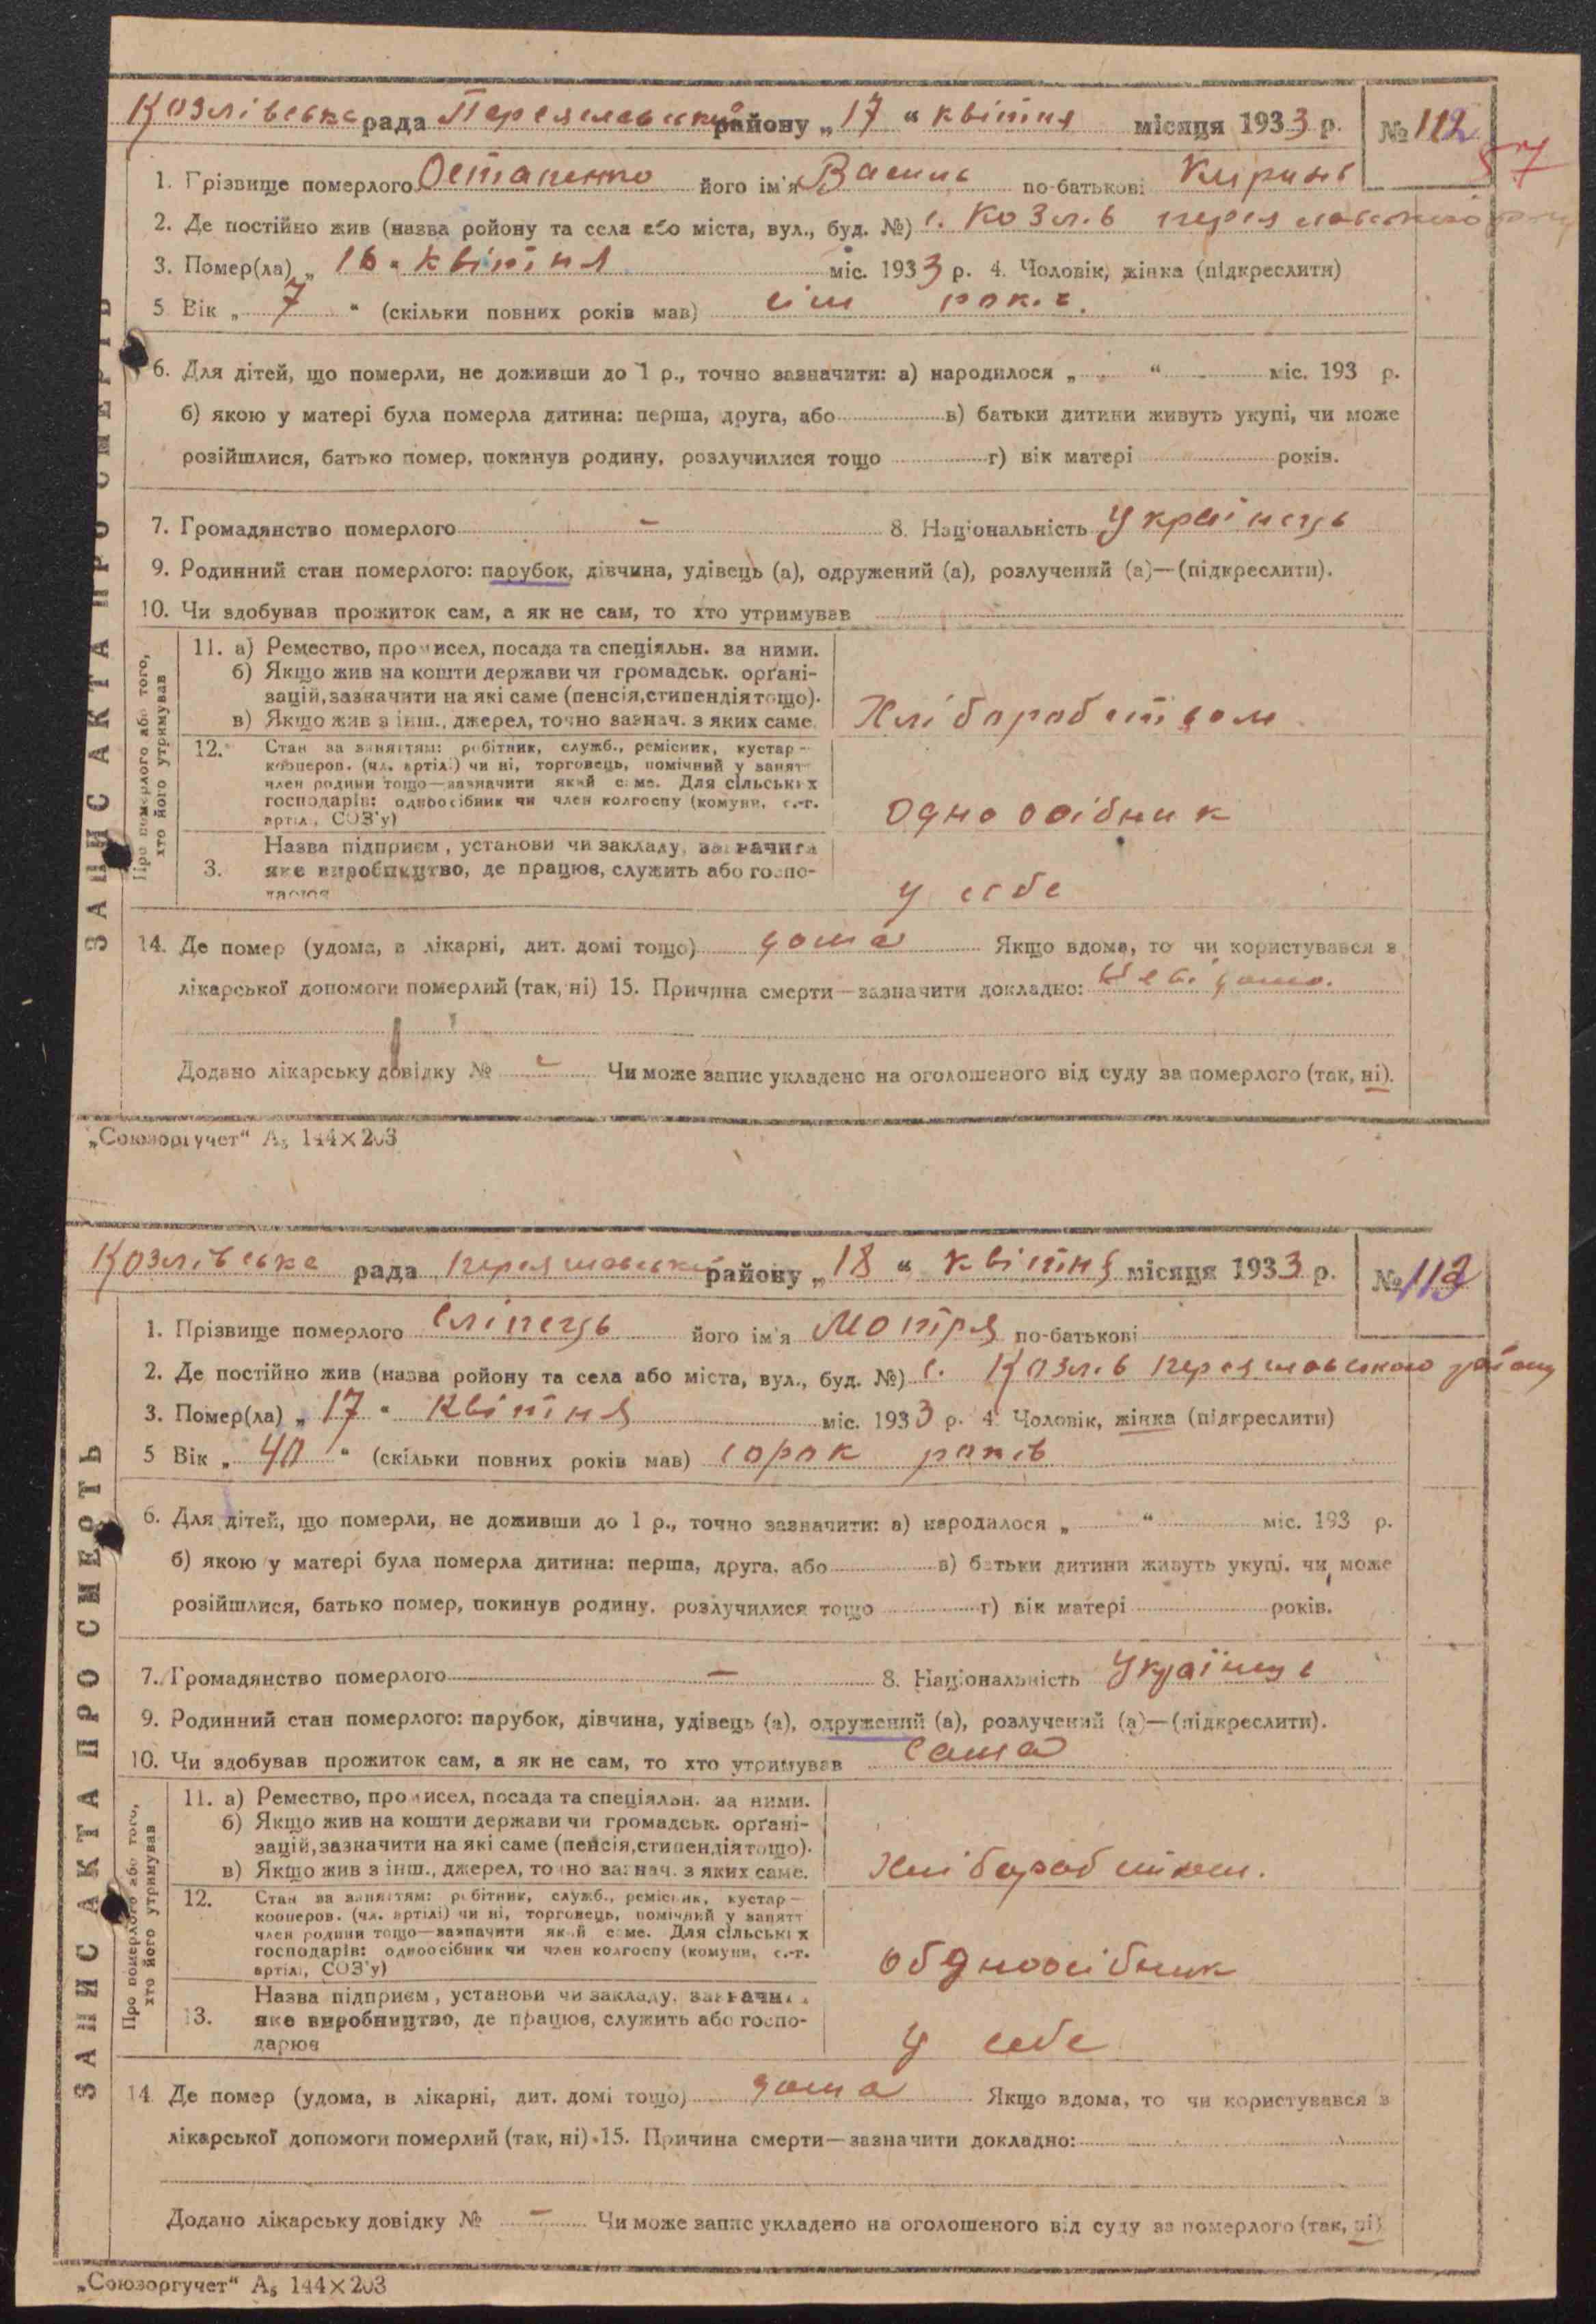 Козлівська рада Переяславський району „17“ квітня місяця 1933 р. № 112
57
1. Прізвище померлого Остапенко його ім'я Василь по-батькові
2. Де постійно жив (назва ройону та села або міста, вул., буд. №) с. Козлів переяславського району
3. Помер(ла) „16“ квітня міс. 1933 р. 4. Чоловік, жінка (підкреслити)
5 Вік „7“ (скільки повних років мав) сім років.
6. Для дітей, що померли, не доживши до 1 р., точно зазначити: а) народилося „ “ міс. 193 р.
б) якою у матері була померла дитина: перша, друга, або в) батьки дитини живуть укупі, чи може
розійшлися, батько помер, покинув родину, розлучилися тощо г) вік матері років.
7. Громадянство померлого – 8. Національність Українець
9. Родинний стан померлого: парубок, дівчина, удівець (а), одружений (а), розлучений (а)—(підкреслити).
10. Чи здобував прожиток сам, а як не сам, то хто утримував
ЗАПИС АКТА ПРО СМЕРТЬ
Про померлого або того, хто його утримував
11. а) Ремество, промисел, посада та спеціяльн. за ними.
б) Якщо жив на кошти держави чи громадськ. орґані-
зацій, зазначити на які саме (пенсія, стипендія тощо).
в) Якщо жив з інш., джерел, точно зазнач. з яких саме.
Хліборобством
12. Стан за заняттям: робітник, служб., ремісник, кустар—
кооперов. (чл. артілі) чи ні, торговець, помічний у занятт
член родини тощо—зазначити який саме. Для сільських
господарів: одноосібник чи член колгоспу (комуни, с.-г.
артілі, СОЗ'у)
Одноосібник
Назва підприєм., установи чи закладу, зазначити
3. яке виробництво, де працює, служить або госпо-
дарює
у себе
14. Де помер (удома, в лікарні, дит. домі тощо) дома Якщо вдома, то чи користувався з
лікарської допомоги померлий (так, ні) 15. Причина смерти—зазначити докладно: Невідомо.
Додано лікарську довідку № – Чи може запис укладено на оголошеного від суду за померлого (так, ні).
„Союзоргучет“ А₅ 144×203
Козлівська рада переяславський району „18“ квітня місяця 1933 р. № 113
1. Прізвище померлого Сліпець його ім'я Мотря по-батькові
2. Де постійно жив (назва ройону та села або міста, вул., буд. №) с. Козлів переяславського району
3. Помер(ла) „17“ Квітня міс. 1933 р. 4. Чоловік, жінка (підкреслити)
5 Вік „40“ (скільки повних років мав) сорок років
6. Для дітей, що померли, не доживши до 1 р., точно зазначити: а) народилося „ “ міс. 193 р.
б) якою у матері була померла дитина: перша, друга, або в) батьки дитини живуть укупі, чи може
розійшлися, батько помер, покинув родину, розлучилися тощо г) вік матері років.
7. Громадянство померлого – 8. Національність Українець
9. Родинний стан померлого: парубок, дівчина, удівець (а), одружений (а), розлучений (а)—(підкреслити).
10. Чи здобував прожиток сам, а як не сам, то хто утримував сама
ЗАПИС АКТА ПРО СМЕРТЬ
Про померлого або того, хто його утримував
11. а) Ремество, промисел, посада та спеціяльн. за ними.
б) Якщо жив на кошти держави чи громадськ. орґані-
зацій, зазначити на які саме (пенсія, стипендія тощо).
в) Якщо жив з інш., джерел, точно зазнач. з яких саме.
Хліборобством.
12. Стан за заняттям: робітник, служб., ремісник, кустар—
кооперов. (чл. артілі) чи ні, торговець, помічний у занятт
член родини тощо—зазначити який саме. Для сільських
господарів: одноосібник чи член колгоспу (комуни, с.-г.
артілі, СОЗ'у)
Одноосібник
Назва підприєм., установи чи закладу, зазначити
13. яке виробництво, де працює, служить або госпо-
дарює
у себе
14. Де помер (удома, в лікарні, дит. домі тощо) дома Якщо вдома, то чи користувався з
лікарської допомоги померлий (так, ні) 15. Причина смерти—зазначити докладно:
Додано лікарську довідку № – Чи може запис укладено на оголошеного від суду за померлого (так, ні)
„Союзоргучет“ А₅ 144×203